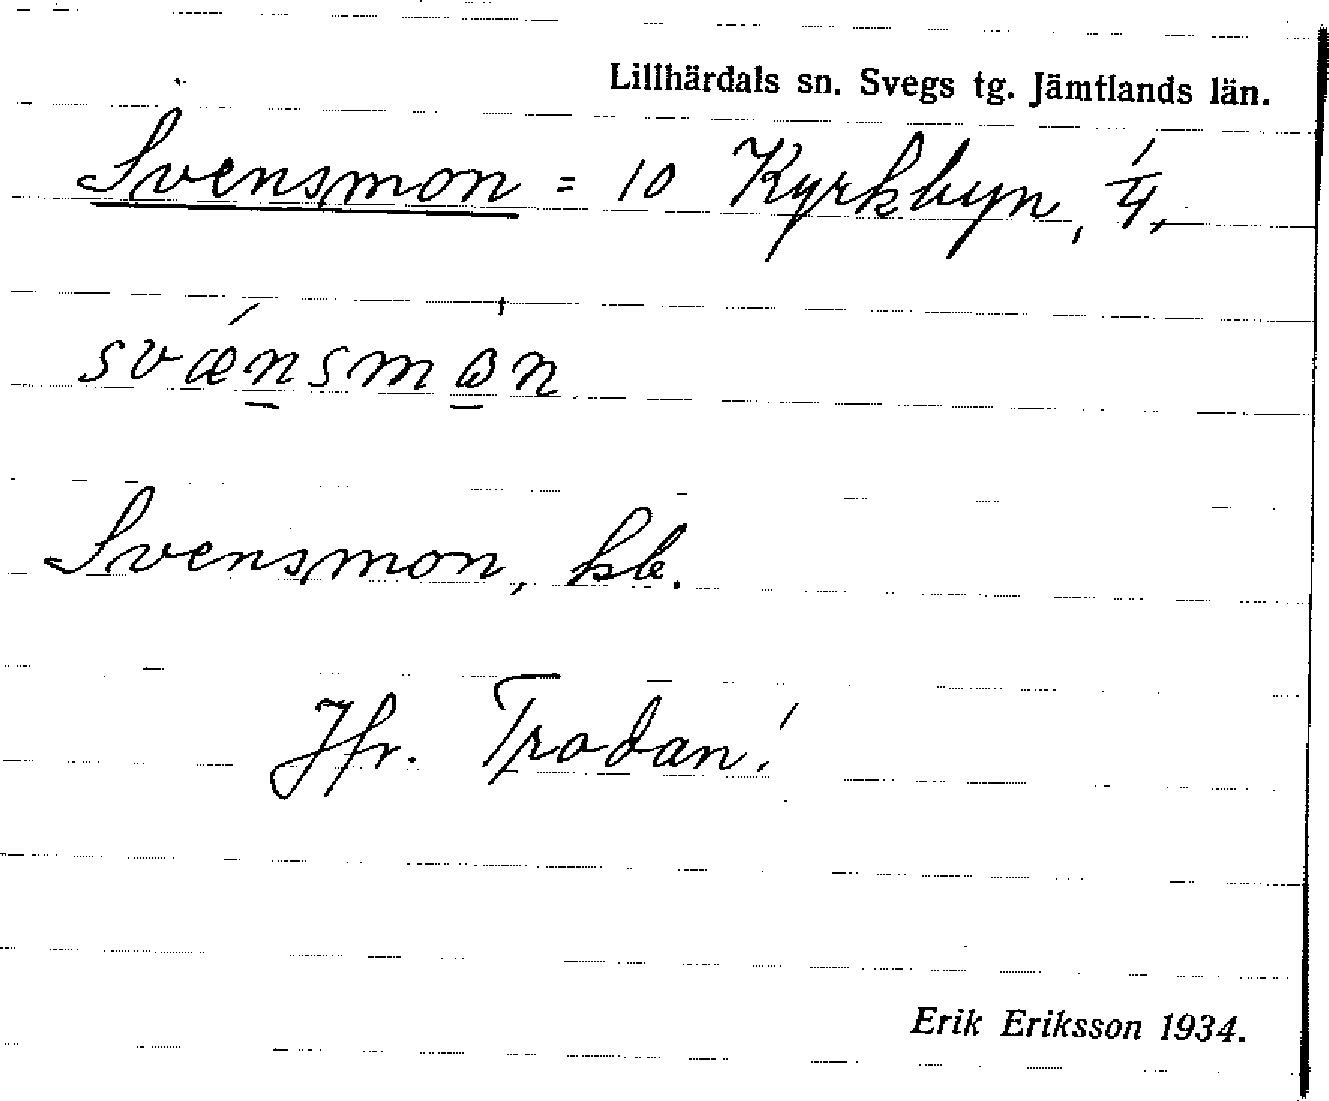 Lillhärdals sn. Svegs tg. Jämtlands län.
Svensmon = 10 Kyrkbyn, 1/4.
svǽn̲smɷ̲̀n
Svensmon, kb.
Jfr. Trodan!
Erik Eriksson 1934.